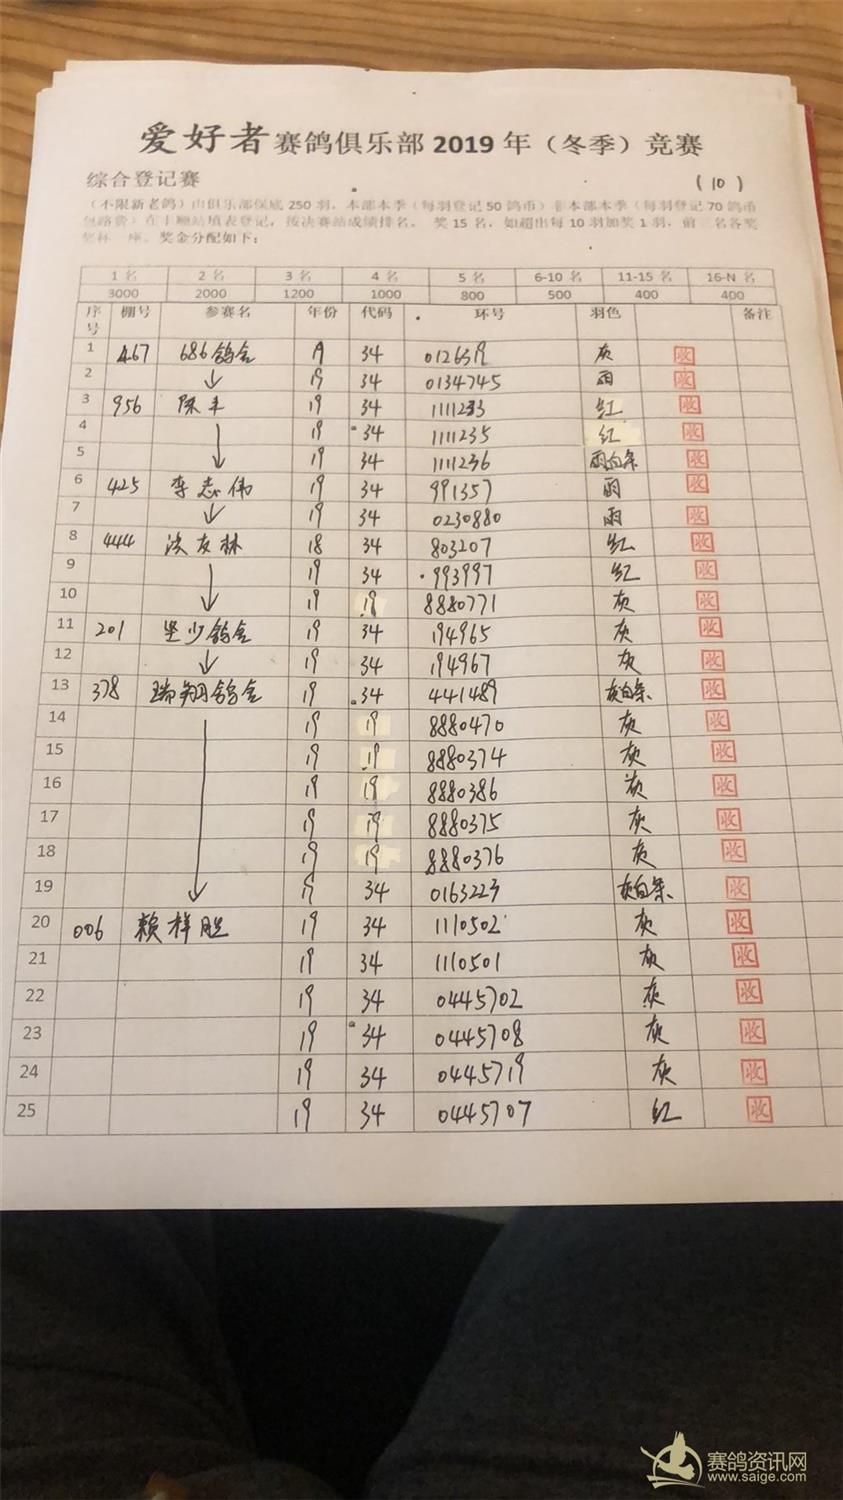 爱好者赛鸽俱乐部 2019 年（冬季）竞赛
综合登记赛 (10)
（不限新老鸽）由俱乐部保底 250 羽，本部本季（每羽登记 50 鸽币）非本部本季（每羽登记 70 鸽币
包路费）在丰顺站填表登记，按决赛站成绩排名。 奖 15 名，如超出每 10 羽加奖 1 羽，前三名各奖
奖杯一座。奖金分配如下：
1 名 2 名 3 名 4 名 5 名 6-10 名 11-15 名 16-N 名
3000 2000 1200 1000 800 500 400 400
序号 棚号 参赛名 年份 代码 环号 羽色 备注
1 467 686鸽舍 19 34 012639 灰 收
2 ↓ 19 34 0134745 雨 收
3 956 陈丰 19 34 1111233 红 收
4 19 34 1111235 红 收
5 ↓ 19 34 1111236 雨白条 收
6 425 李志伟 19 34 991357 雨 收
7 ↓ 19 34 0230880 雨 收
8 444 友林 18 34 803207 红 收
9 19 34 993997 红 收
10 ↓ 19 19 8880771 灰 收
11 201 少鸽舍 19 34 194965 灰 收
12 ↓ 19 34 194967 灰 收
13 378 瑞翔鸽舍 19 34 441489 灰白条 收
14 19 19 8880470 灰 收
15 19 19 8880374 灰 收
16 19 19 8880386 灰 收
17 19 19 8880375 灰 收
18 19 19 8880376 灰 收
19 ↓ 19 34 0163223 灰白条 收
20 006 赖样胆 19 34 1110502 灰 收
21 19 34 1110501 灰 收
22 19 34 0445702 灰 收
23 19 34 0445708 灰 收
24 19 34 0445719 灰 收
25 19 34 0445707 红 收
赛鸽资讯网
www.saige.com